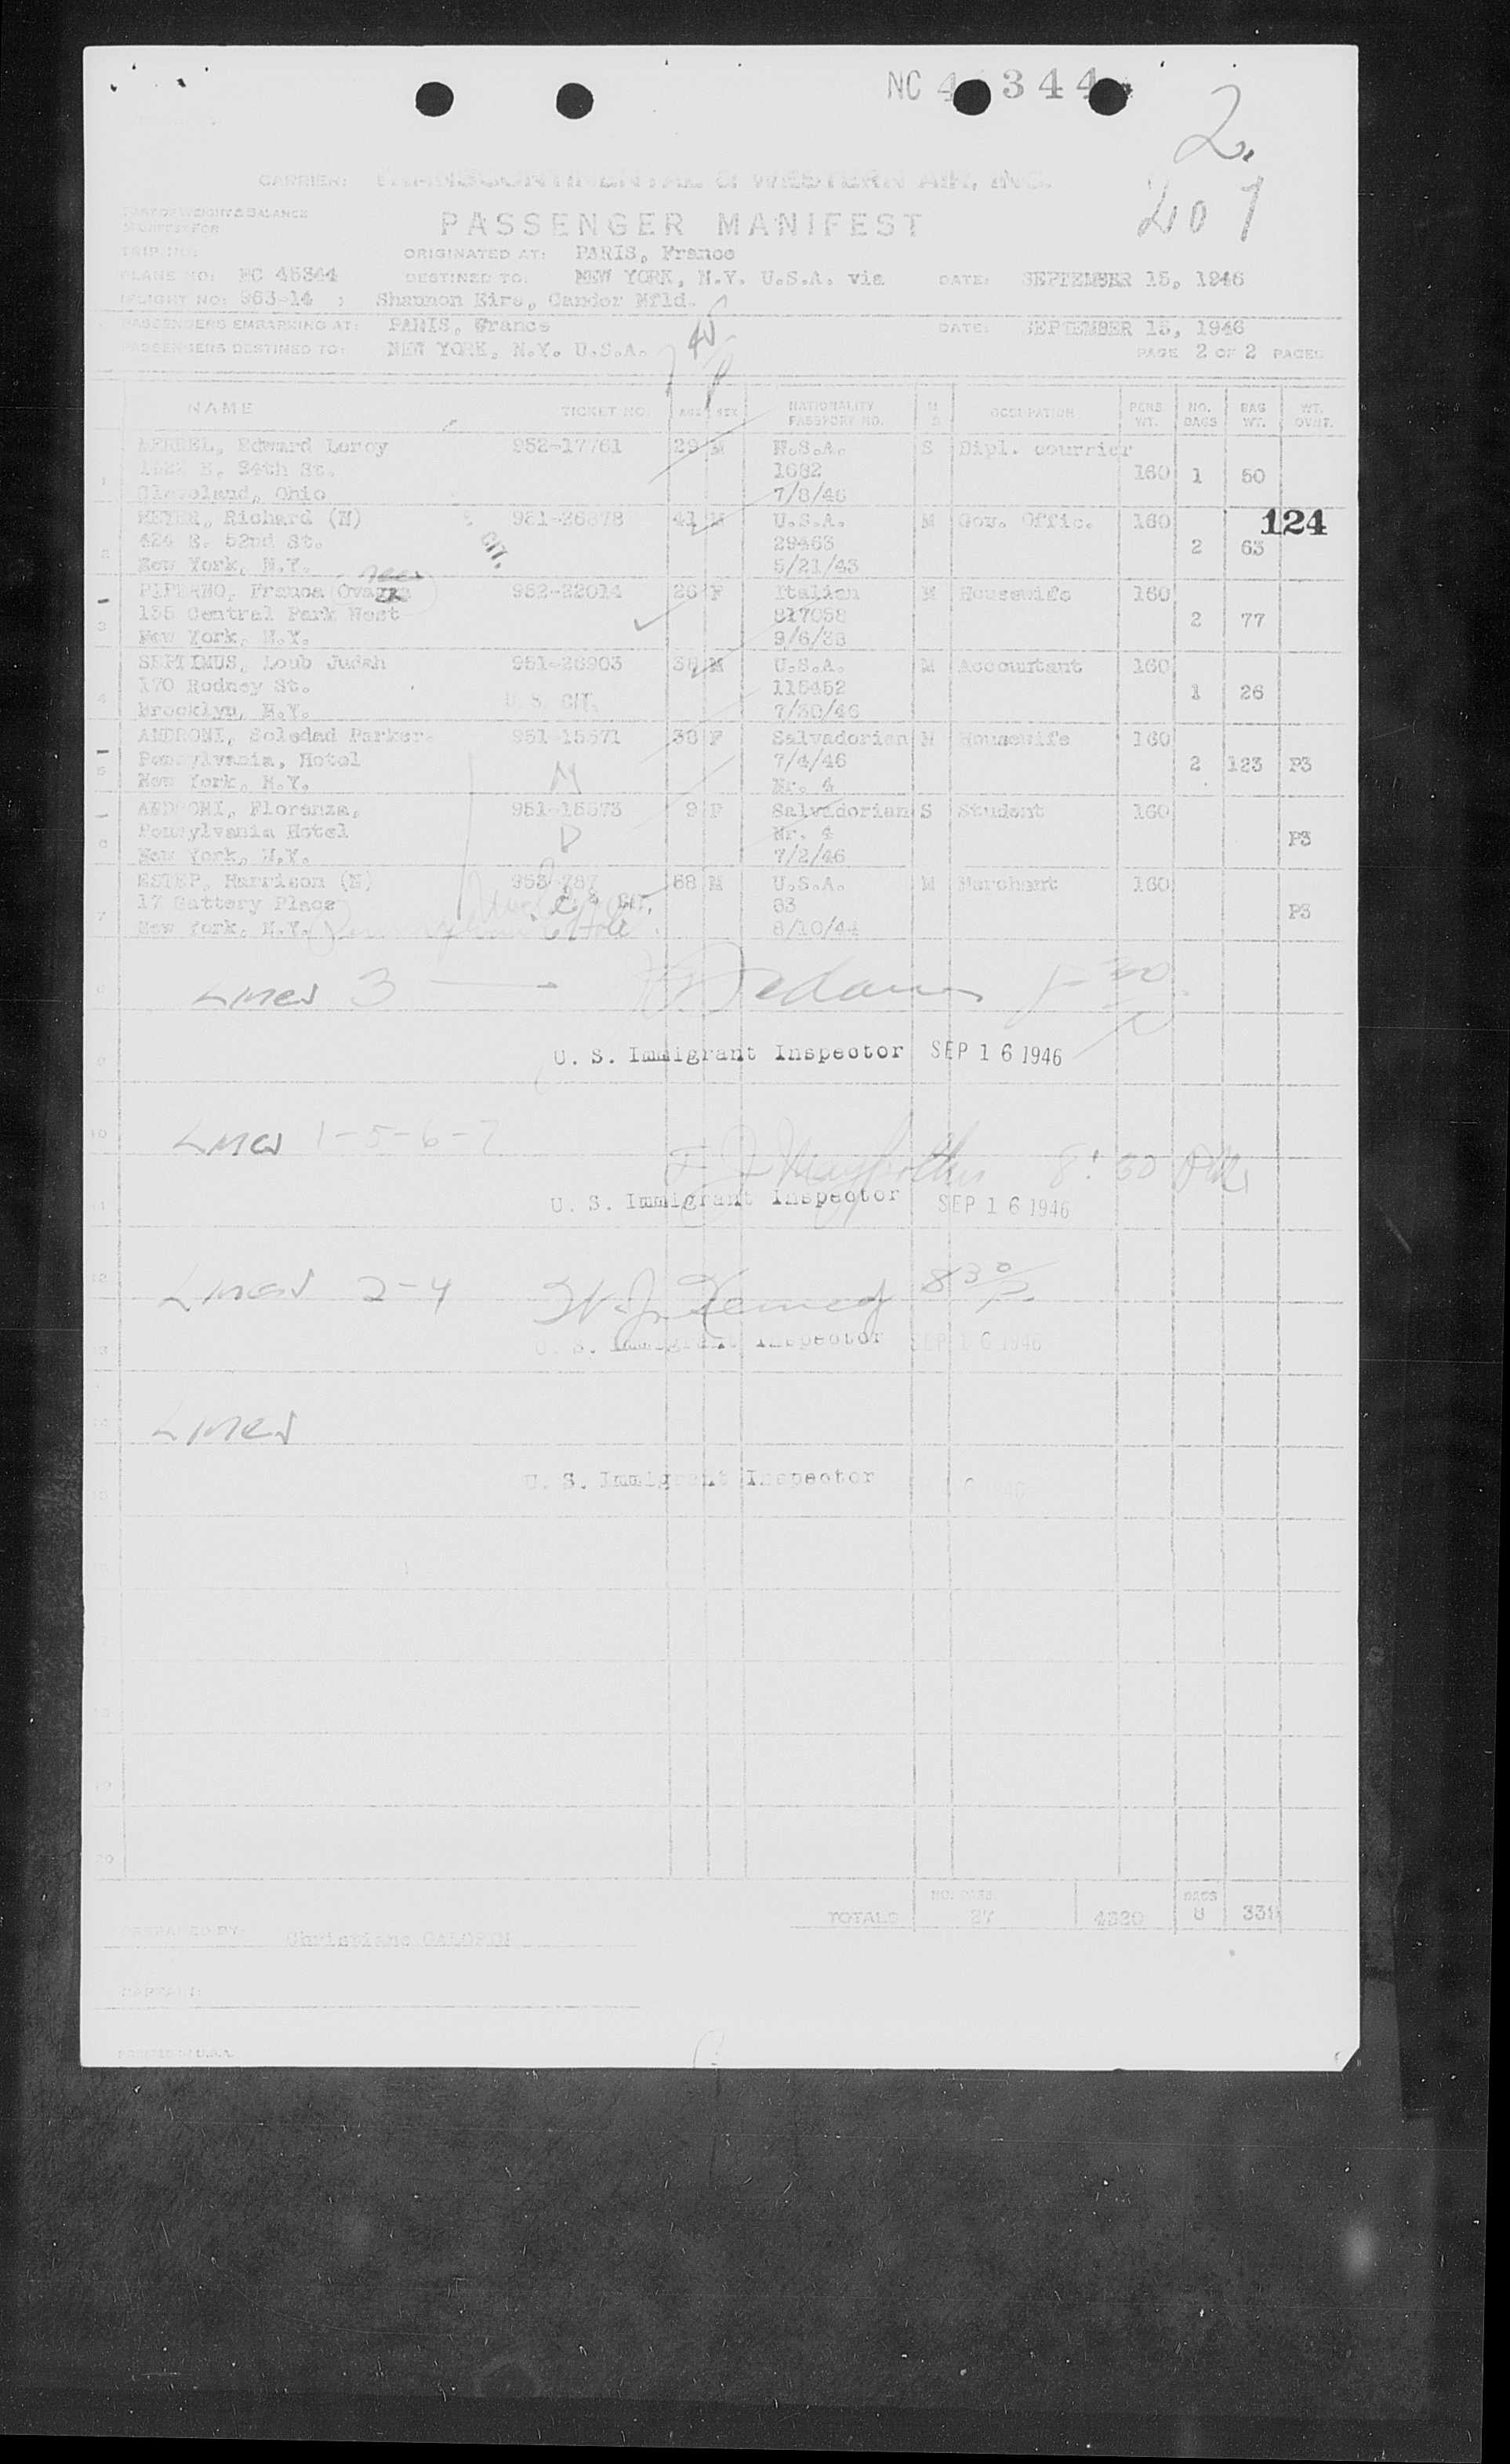 NC 45344
2.
207
CARRIER: TRANSCONTINENTAL & WESTERN AIR, INC.
PART OF WEIGHT & BALANCE
MANIFEST FOR
PASSENGER MANIFEST
TRIP NO: ORIGINATED AT: PARIS, France
PLANE NO: NC 45344 DESTINED TO: NEW YORK, N.Y. U.S.A. via DATE: SEPTEMBER 15, 1946
FLIGHT NO: 963-14 ; Shannon Eire, Gander Nfld.
PASSENGERS EMBARKING AT: PARIS, France DATE: SEPTEMBER 15, 1946
PASSENGERS DESTINED TO: NEW YORK, N.Y. U.S.A. PAGE 2 OF 2 PAGES
NAME TICKET NO. AGE SEX NATIONALITY PASSPORT NO. M S OCCUPATION PERS. WT. NO. BAGS BAG WT. WT. OVHT.
Edward Leroy 952-17761 29 M U.S.A. S Dipl. courrier
E. 34th St. 1682 160 1 50
1 Cleveland, Ohio 7/8/46
MEYER, Richard (N) 951-26878 41 M U.S.A. M Gov. Offic. 160 124
424 E. 52nd St. CIT. 29463 2 63
2 New York, N.Y. 5/21/43
PIPERNO, Franca 952-22014 26 F Italian M Housewife 160
135 Central Park West 817058 2 77
3 New York, N.Y. 9/6/38
SEPTIMUS, Loub Judah 951-26903 38 M U.S.A. M Accountant 160
170 Rodney St. 115452 1 26
4 Brooklyn, N.Y. U.S. CIT. 7/30/46
ANDRONI, Soledad Parker. 951-15571 38 F Salvadorian M Housewife 160
5 Pensylvania, Hotel 7/4/46 2 123 P3
New York, N.Y. Nr. 4
ANDRONI, Floranza, 951-15573 9 F Salvadorian S Student 160
6 Pensylvania Hotel Nr. 4 P3
New York, N.Y. 7/2/46
ESTEP, Harrison (N) 953-787 58 M U.S.A. M Merchant 160
17 Battery Place CIT. 33 P3
7 New York, N.Y. 8/10/44
Lines 3 5 30
U. S. Immigrant Inspector SEP 16 1946
10
Lines 1-5-6-7 8:30 PM
U. S. Immigrant Inspector SEP 16 1946
12
Lines 2-4 8 30 P.
U. S. Immigrant Inspector SEP 16 1946
Lines
U. S. Immigrant Inspector
TOTALS NO. PASS. 27 4320 BAGS 8 339
PREPARED BY: Christiane
CAPTAIN:
PRINTED IN U.S.A.